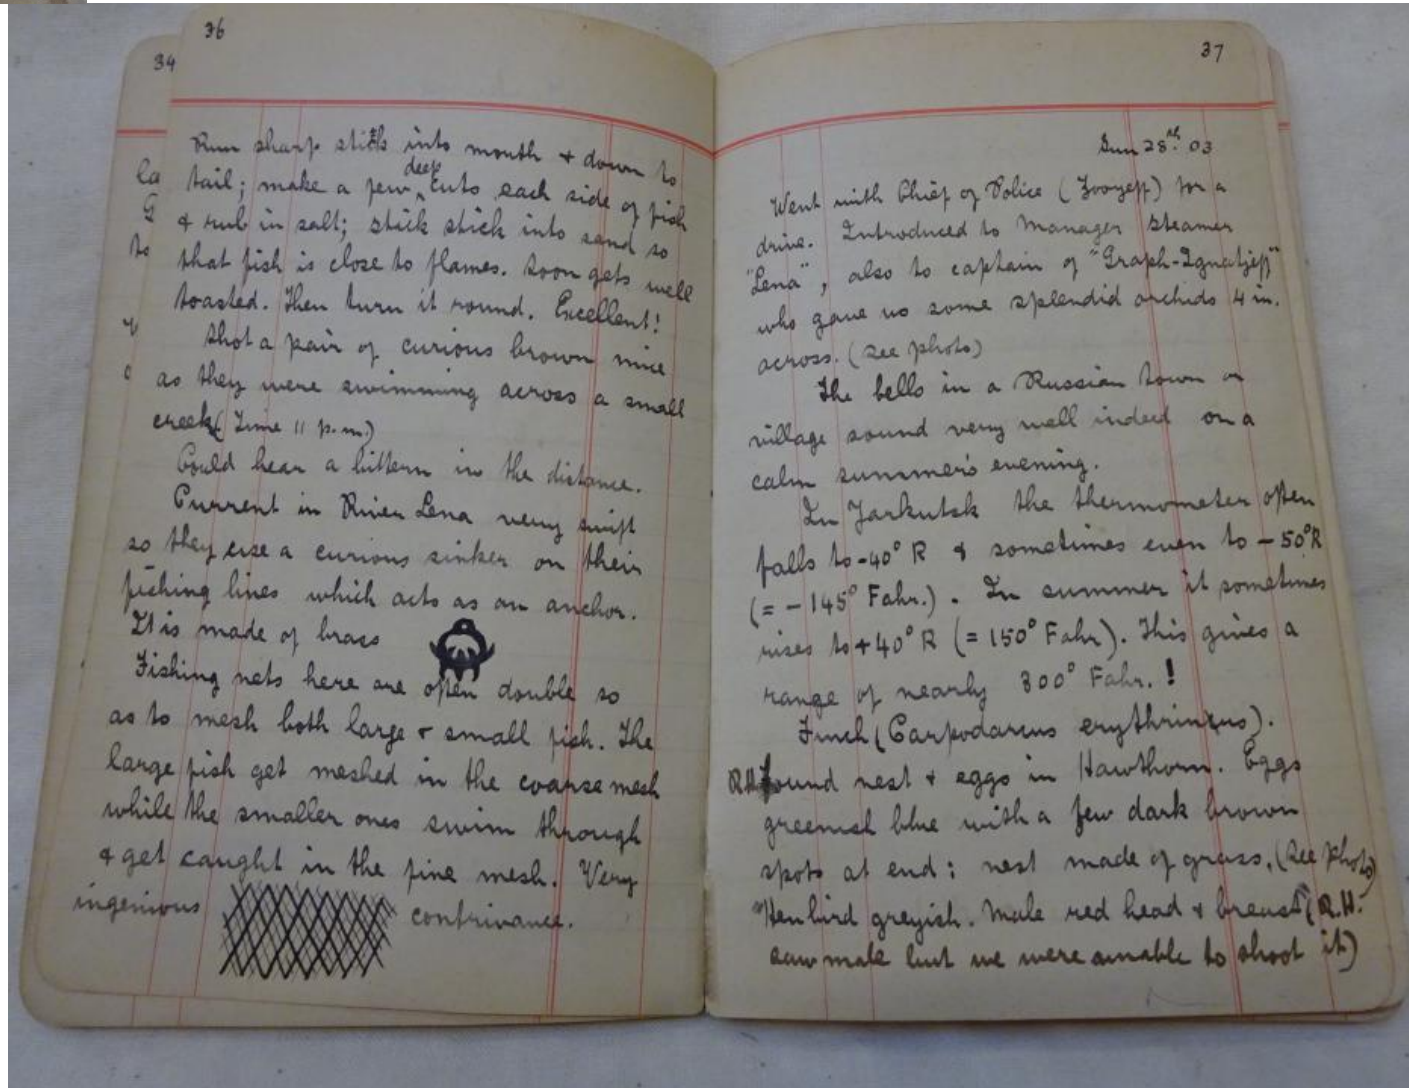 36
Run sharp stick into mouth & down to
tail; make a few deep cuts each side of fish
& rub in salt; stick stick into sand so
that fish is close to flames. Soon gets well
toasted. Then turn it round. Excellent!
Shot a pair of curious brown mice
as they were swimming across a small
creek (Time 11 p.m.)
Could hear a bittern in the distance.
Current in River Lena very swift
so they use a curious sinker on their
fishing lines which acts as an anchor.
It is made of brass
Fishing nets here are often double so
as to mesh both large & small fish. The
large fish get meshed in the coarse mesh
while the smaller ones swim through
& get caught in the fine mesh. Very
ingenious contrivance.
34
la
to
37
Sun 28th. 03
Went with Chief of Police (Zooyeff) for a
drive. Introduced to Manager steamer
"Lena", also to captain of "Graph-Ignatjeff"
who gave us some splendid orchids 4 in.
across. (See photo)
The bells in a Russian town or
village sound very well indeed on a
calm summer's evening.
In Jarkutsk the thermometer often
falls to -40° R & sometimes even to -50°R
(= -145° Fahr.). In summer it sometimes
rises to +40° R (= 150° Fahr). This gives a
range of nearly 300° Fahr. !
Finch (Carpodarcus erythrinus).
R.H. found nest & eggs in Hawthorn. Eggs
greenish blue with a few dark brown
spots at end: nest made of grass. (See photo)
"Hen bird greyish. Male red head & breast" (R.H.
saw male but we were unable to shoot it)